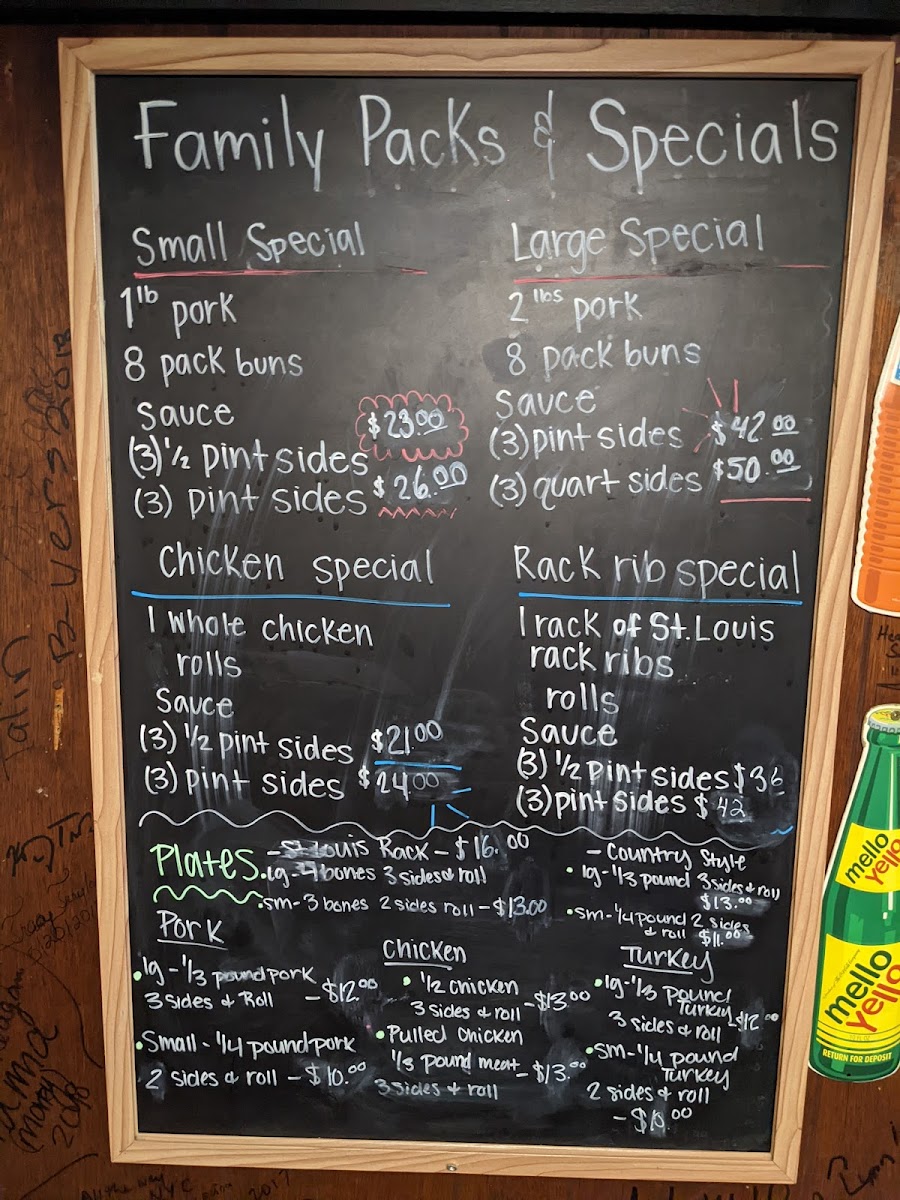 Family Packs & Specials
Small Special
1 lb pork
8 pack buns
Sauce
(3) 1/2 pint sides $23.00
(3) pint sides $26.00
Large Special
2 lbs pork
8 pack buns
Sauce
(3) pint sides $42.00
(3) quart sides $50.00
Chicken special
1 whole chicken
rolls
Sauce
(3) 1/2 pint sides $21.00
(3) pint sides $24.00
Rack rib special
1 rack of St. Louis
rack ribs
rolls
Sauce
(3) 1/2 pint sides $36
(3) pint sides $42
Plates
- St Louis Rack - $16.00
lg - 4 bones 3 sides & roll
sm - 3 bones 2 sides roll - $13.00
- Country Style
lg - 1/3 pound 3 sides & roll
$13.00
sm - 1/4 pound 2 sides
& roll $11.00
Pork
lg - 1/3 pound pork
3 sides & Roll - $12.00
Small - 1/4 pound pork
2 sides & roll - $10.00
Chicken
1/2 chicken
3 sides & roll - $13.00
Pulled Chicken
1/3 pound meat - $13.00
3 sides & roll
Turkey
lg - 1/3 pound
Turkey $12.00
3 sides & roll
sm - 1/4 pound
Turkey
2 sides & roll
- $10.00
mello
yello
mello
yello
RETURN FOR DEPOSIT
B-Vers 2018
March
2018
NYC
2017